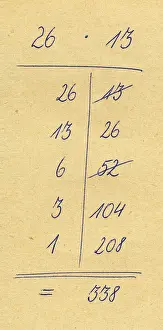 26 · 13
26 13
13 26
6 52
3 104
1 208
= 338